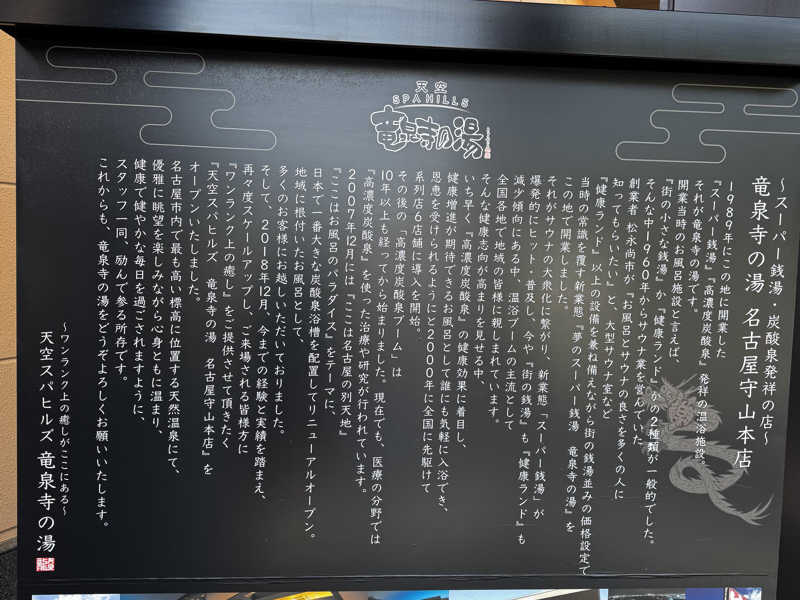 天空
SPA HILLS
竜泉寺の湯
～スーパー銭湯・炭酸泉発祥の店～
竜泉寺の湯 名古屋守山本店
1989年にこの地に開業した
『スーパー銭湯』『高濃度炭酸泉』発祥の温浴施設。
それが竜泉寺の湯です。
開業当時のお風呂施設と言えば、
『街の小さな銭湯』か『健康ランド』かの2種類が一般的でした。
そんな中1960年からサウナ業を営んでいた、
創業者 松永尚市が、“お風呂とサウナの良さを多くの人に
知ってもらいたい”と、大型サウナ室など
『健康ランド』以上の設備を兼ね備えながら街の銭湯並みの価格設定で
当時の常識を覆す新業態『夢のスーパー銭湯 竜泉寺の湯』を
この地で開業しました。
それがサウナの大衆化に繋がり、新業態「スーパー銭湯」が
爆発的にヒット・普及し、今や『街の銭湯』も『健康ランド』も
減少傾向にある中、温浴ブームの主流として
全国各地で地域の皆様に親しまれています。
そんな健康志向が高まりを見せる中、
いち早く『高濃度炭酸泉』の健康効果に着目し、
健康増進が期待できるお風呂として誰にも気軽に入浴でき、
恩恵を受けられるようにと2000年に全国に先駆けて
系列店6店舗に導入を開始。
その後の「高濃度炭酸泉ブーム」は
10年以上も経ってから始まりました。現在でも、医療の分野では
『高濃度炭酸泉』を使った治療や研究が行われています。
2007年12月には『ここは名古屋の別天地』
『ここはお風呂のパラダイス』をテーマに、
日本で一番大きな炭酸泉浴槽を配置してリニューアルオープン。
地域に根付いたお風呂として、
多くのお客様にお越しいただいておりました。
そして、2018年12月、今までの経験と実績を踏まえ、
再々度スケールアップし、ご来場される皆様方に
『ワンランク上の癒し』をご提供させて頂きたく
『天空スパヒルズ 竜泉寺の湯 名古屋守山本店』を
オープンいたしました。
名古屋市内で最も高い標高に位置する天然温泉にて、
優雅に眺望を楽しみながら心身ともに温まり、
健康で健やかな毎日を過ごされますように、
スタッフ一同、励んで参る所存です。
これからも、竜泉寺の湯をどうぞよろしくお願いいたします。
～ワンランク上の癒しがここにある～
天空スパヒルズ 竜泉寺の湯